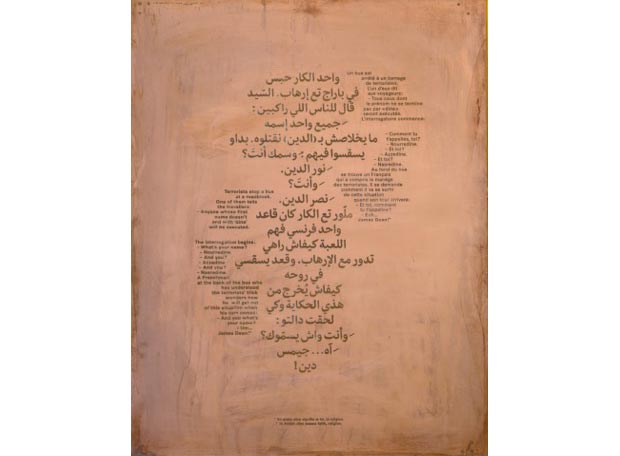 واحد الكار حبس
في باراج تع إرهاب. السّيد
قال للناس اللي راكبين :
ـ جميع واحد إسمه
ما يخلاصش بـ (الدين) نقتلوه. بداو
يسقسوا فيهم : وسمك أنتَ؟
ـ نور الدين.
ـ وأنتَ؟
ـ نصر الدين.
ملّور تع الكار كان قاعد
واحد فرنسي فهم
اللعبة كيفاش راهي
تدور مع الإرهاب. وقعد يسقسي
في روحه
كيفاش يُخرج من
هذي الحكاية وكي
لحقت دالتو :
ـ وأنت واش يسمّوك؟
ـ آه... جيمس
دين !
Un bus est
arrêté à un barrage
de terroristes.
L'un d'eux dit
aux voyageurs:
– Tous ceux dont
le prénom ne se termine
pas par «dine»
seront exécutés.
L'interrogatoire commence:
– Comment tu
t'appelles, toi?
– Nourredine.
– Et toi?
– Azzedine.
– Et toi?
– Nasredine.
Au fond du bus
se trouve un Français
qui a compris le manège
des terroristes. Il se demande
comment il va se sortir
de cette situation
quand son tour arrivera:
– Et toi, comment
tu t'appelles?
– Euh...
James Dean!*
Terrorists stop a bus
at a roadblock.
One of them tells
the travellers:
– Anyone whose first
name doesn't
end with 'dine'
will be executed.
The interrogation begins:
– What's your name?
– Nourredine.
– And you?
– Azzedine
– And you?
– Nasredine.
A Frenchman
at the back of the bus who
has understood
the terrorists' trick
wonders how
he will get out
of this situation when
his turn comes:
– And you what's
your name?
– Um...
James Dean!*
* En arabe, dine signifie la foi, la religion.
* In Arabic dine means faith, religion.